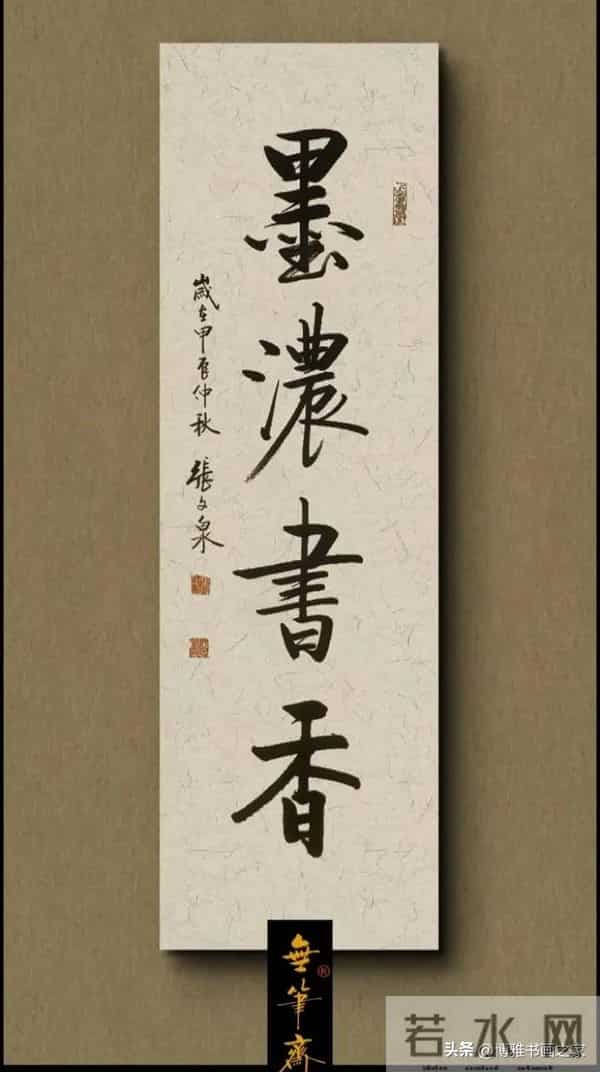 墨濃書香
歲在甲辰仲秋 張文泉
無筆齋
®
若水网
头条 @博雅书画之家